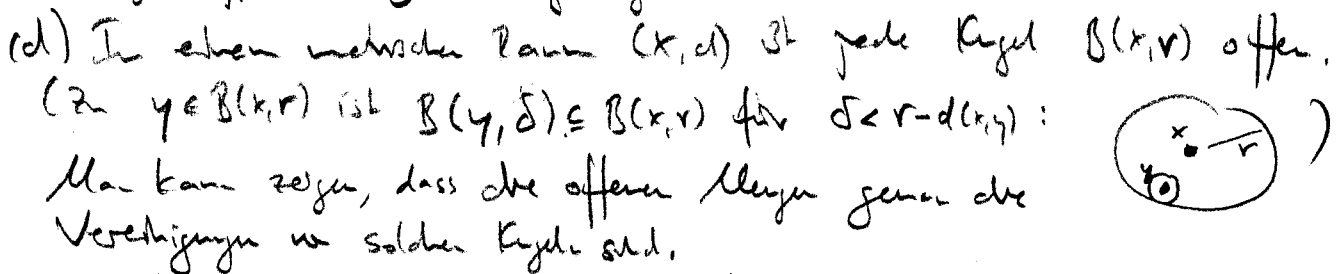 (d) In einem metrischen Raum (X,d) ist jede Kugel B(x,r) offen.
(Zu y ∈ B(x,r) ist B(y,δ) ⊆ B(x,r) für δ < r-d(x,y) : x r y )
Man kann zeigen, dass die offenen Mengen genau die
Vereinigungen von solchen Kugeln sind.